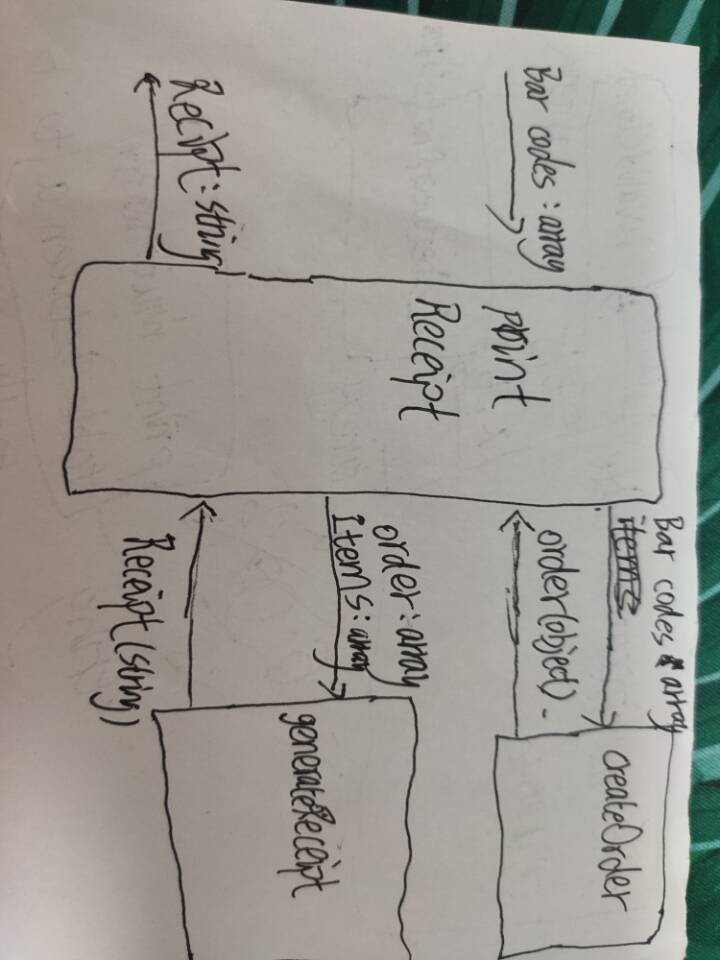 Bar codes : array
Reciipt : string
print
Receipt
Bar codes & array
items
order(object)
order : array
Items : array
Receipt (string)
createOrder
generateReceipt